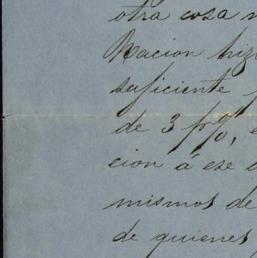 otra cosa
Nacion hiz
suficiente
de 3 p%, e
cion á ese
mismos de
de quienes